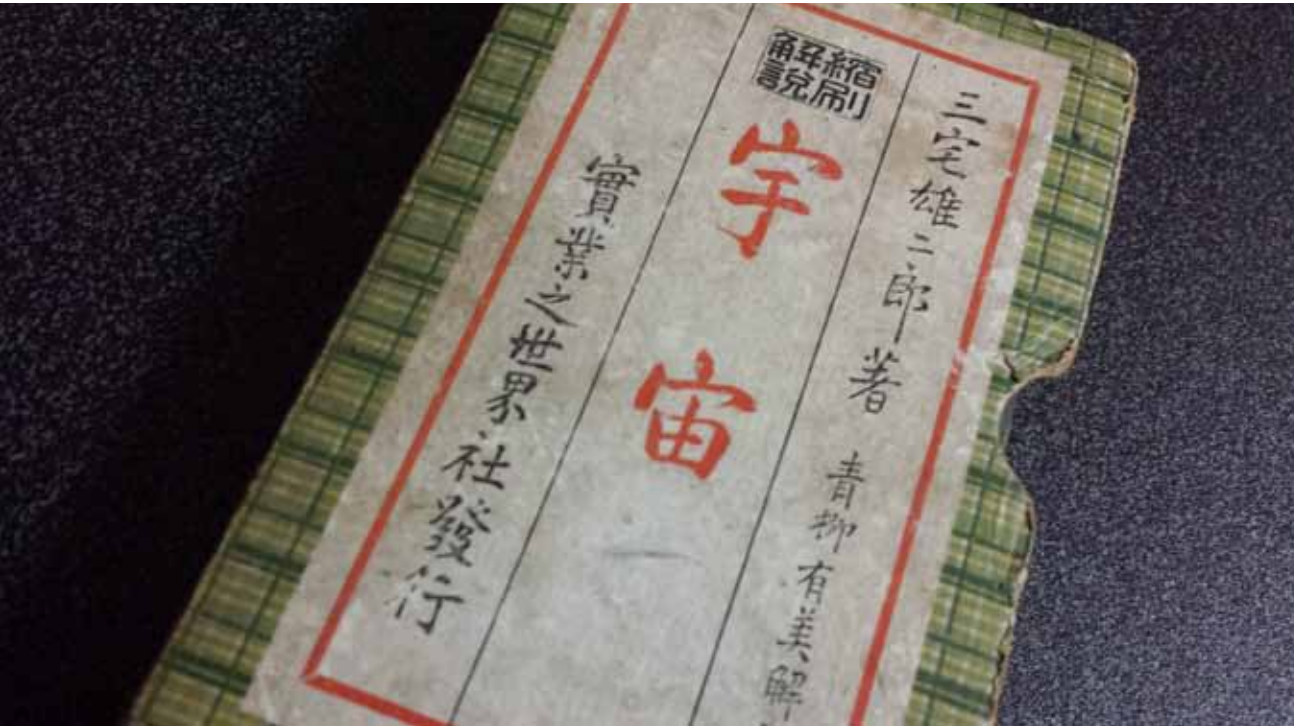 三宅雄二郎著 青柳有美解
縮刷
解説
宇宙
實業之世界社發行